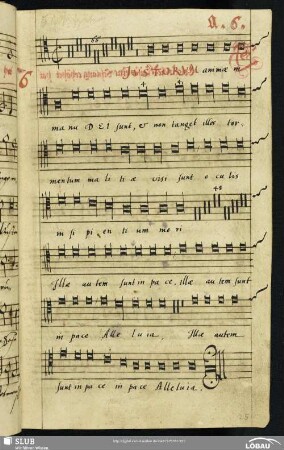 A. 6.
68
manu DEI sunt, & non tanget illos tor,
mentum malitiæ visi sunt oculos
48
insipientium mori
Illæ autem sunt in pace, illæ autem sunt
in pace Alleluia, Illæ autem
sunt in pace in pace Alleluia.
SLUB
Wir führen Wissen.
LÖBAU